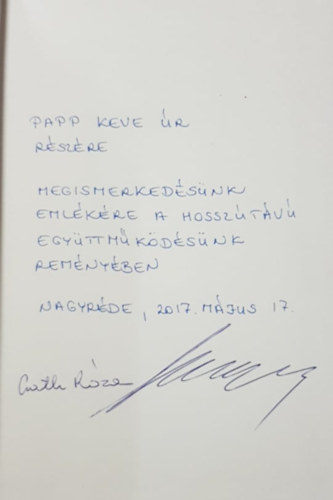 PAPP KEVE ÚR
RÉSZÉRE
MEGISMERKEDÉSÜNK
EMLÉKÉRE A HOSSZÚTÁVÚ
EGYÜTTMŰKÖDÉSÜNK
REMÉNYÉBEN
NAGYRÉDE, 2017. MÁJUS 17.
Róza